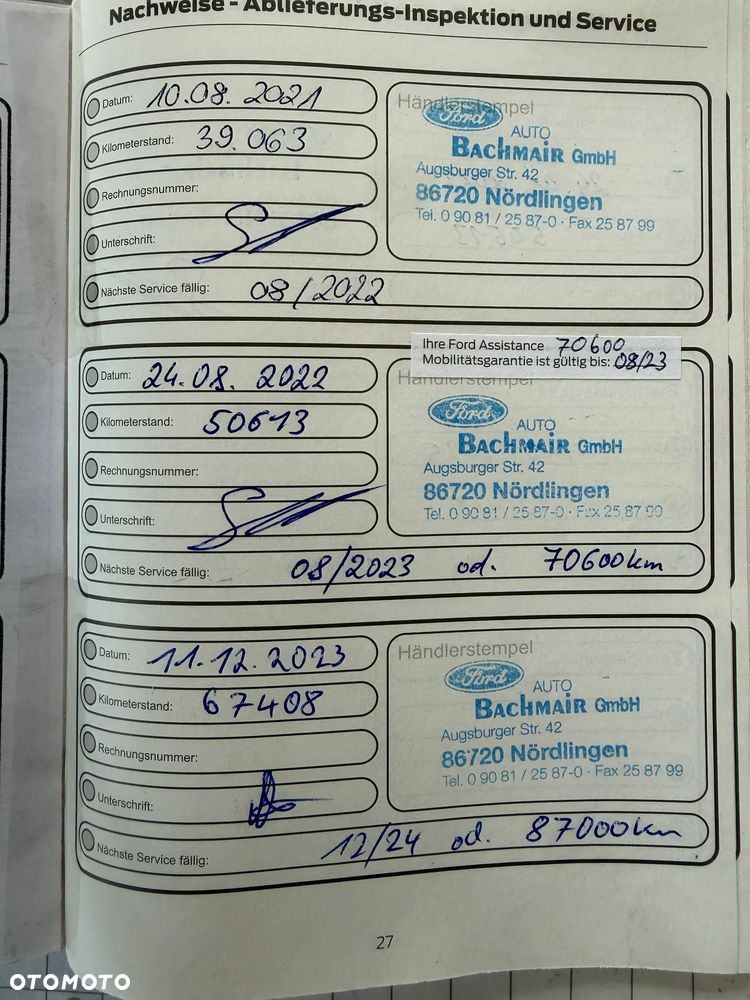 Nachweise - Ablieferungs-Inspektion und Service
Datum: 10.08.2021
Kilometerstand: 39.063
Rechnungsnummer:
Unterschrift:
Nächste Service fällig: 08/2022
Händlerstempel
Ford
AUTO
BACHMAIR GmbH
Augsburger Str. 42
86720 Nördlingen
Tel. 0 90 81 / 25 87-0 · Fax 25 87 99
Ihre Ford Assistance 70600
Mobilitätsgarantie ist gültig bis: 08/23
Datum: 24.08.2022
Kilometerstand: 50613
Rechnungsnummer:
Unterschrift:
Nächste Service fällig: 08/2023 od. 70600km
Händlerstempel
Ford
AUTO
BACHMAIR GmbH
Augsburger Str. 42
86720 Nördlingen
Tel. 0 90 81 / 25 87-0 · Fax 25 87 99
Datum: 11.12.2023
Kilometerstand: 67408
Rechnungsnummer:
Unterschrift:
Nächste Service fällig: 12/24 od. 87000km
Händlerstempel
Ford
AUTO
BACHMAIR GmbH
Augsburger Str. 42
86720 Nördlingen
Tel. 0 90 81 / 25 87-0 · Fax 25 87 99
27
OTOMOTO